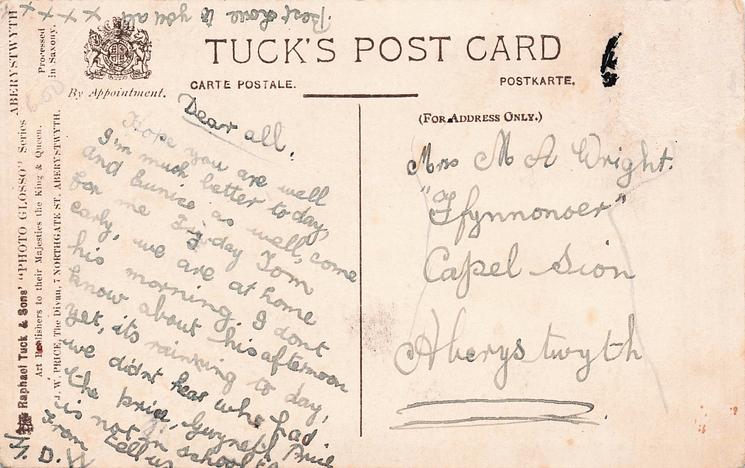 TUCK'S POST CARD
CARTE POSTALE.
POSTKARTE.
By Appointment.
(FOR ADDRESS ONLY.)
Best love to you all
x x x x
Dear all,
Hope you are well
I'm much better to day,
and Eunice as well, come
for me Friday Tom
early, we are at home
his morning. I dont
know about his afternoon
yet, its raining to day,
we didnt hear who had
the prize, Gwyneth Price
is not in school
From tell us
N. D.
Mrs M A Wright.
"Ffynnonoer"
Capel Sion
Aberystwyth
Raphael Tuck & Sons' "PHOTO GLOSSO" Series ABERYSTWYTH
Art Publishers to their Majesties the King & Queen.
Processed
in Saxony.
J. W. PRICE, The Divan, 7 NORTHGATE ST. ABERYSTWYTH.